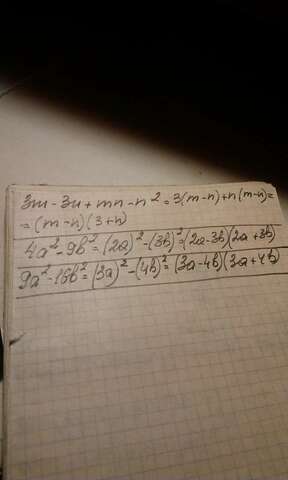 3m - 3n + mn - n² = 3(m-n) + n(m-n) =
= (m-n)(3+n)
4a² - 9b² = (2a)² - (3b)² = (2a-3b)(2a+3b)
9a² - 16b² = (3a)² - (4b)² = (3a-4b)(3a+4b)